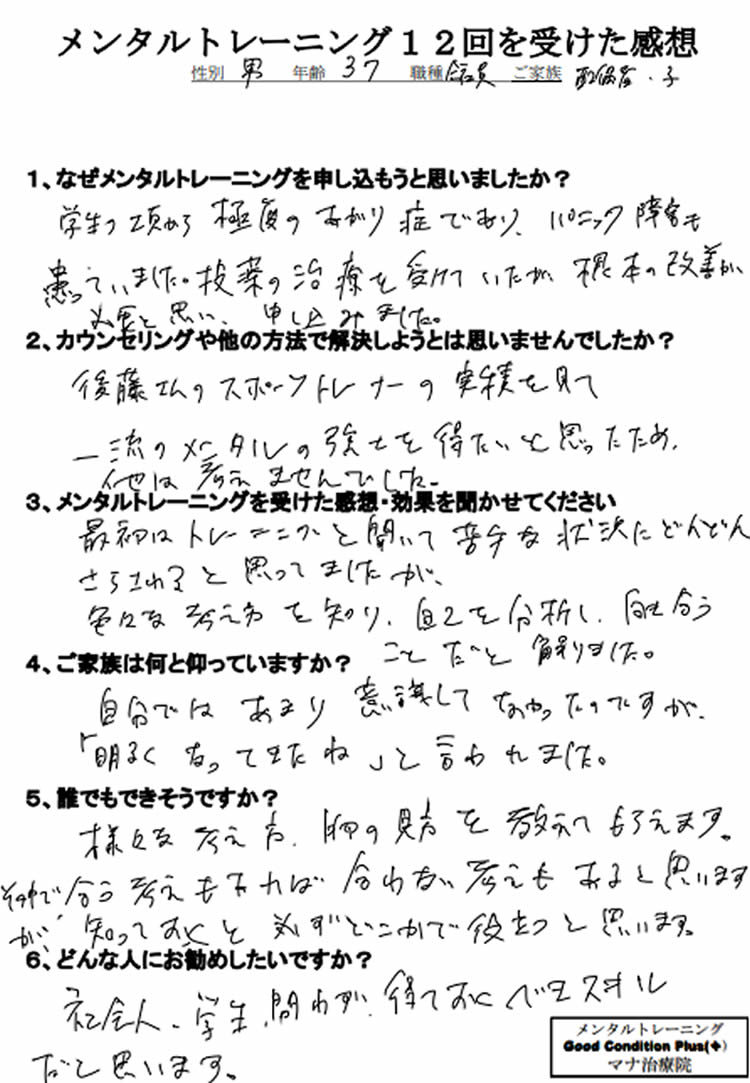 メンタルトレーニング12回を受けた感想
性別 男 年齢 37 職種 会社員 ご家族 配偶者・子
1、なぜメンタルトレーニングを申し込もうと思いましたか?
学生の頃から極度のあがり症であり、パニック障害も
患っていました。投薬の治療を受けていたが、根本の改善が
必要と思い、申し込みました。
2、カウンセリングや他の方法で解決しようとは思いませんでしたか?
後藤さんのスポーツトレーナーの実績を見て
一流のメンタルの強さを得たいと思ったため、
他は考えませんでした。
3、メンタルトレーニングを受けた感想・効果を聞かせてください
最初はトレーニングと聞いて苦手な状況にどんどん
さらされると思ってましたが、
色々な考え方を知り、自己を分析し、向き合う
ことだと解りました。
4、ご家族は何と仰っていますか?
自分ではあまり意識してなかったのですが、
「明るくなってきたね」と言われました。
5、誰でもできそうですか?
様々な考え方、物の見方を教えてもらえます。
その中で合う考えもあれば合わない考えもあると思います
が、知っておくと必ずどこかで役立つと思います。
6、どんな人にお勧めしたいですか?
社会人、学生、問わず、得ておくべきスキル
だと思います。
メンタルトレーニング
Good Condition Plus(✚)
マナ治療院